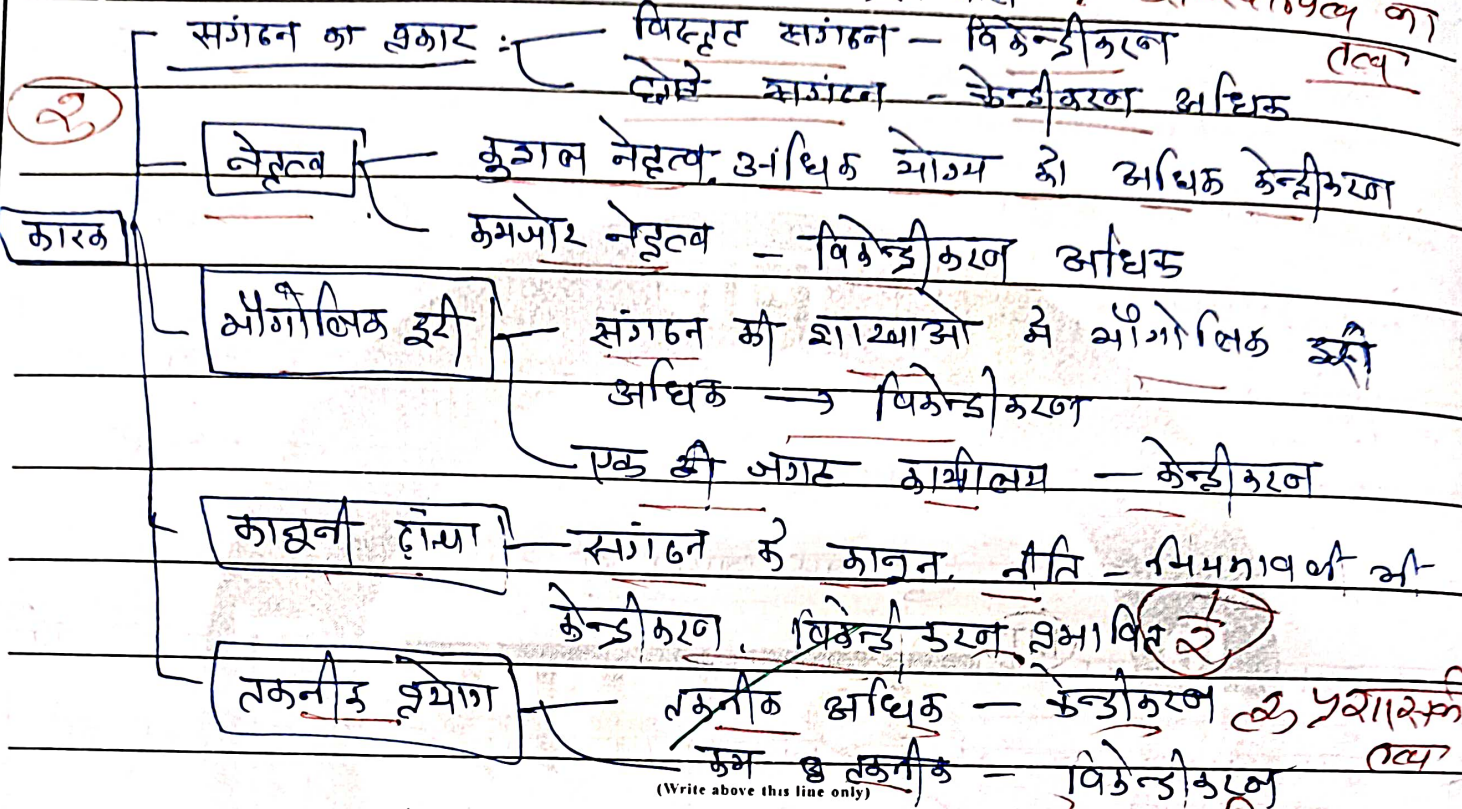 का
संगठन का प्रकार :- विस्तृत संगठन – विकेन्द्रीकरण
तत्व
छोटे संगठन – केन्द्रीकरण अधिक
2
नेतृत्व कुशल नेतृत्व, अधिक योग्य हो अधिक केन्द्रीकरण
कारक
कमजोर नेतृत्व – विकेन्द्रीकरण अधिक
भौगोलिक दूरी संगठन की शाखाओ मे भौगोलिक दूरी
अधिक → विकेन्द्रीकरण
एक ही जगह कार्यालय – केन्द्रीकरण
कानूनी ढांचा – संगठन के कानून, नीति – नियमावली भी
केन्द्रीकरण, विकेन्द्रीकरण प्रभावित
तकनीक प्रयोग तकनीक अधिक – केन्द्रीकरण
प्रशासकीय
तत्व
कम तकनीक – विकेन्द्रीकरण
(Write above this line only)